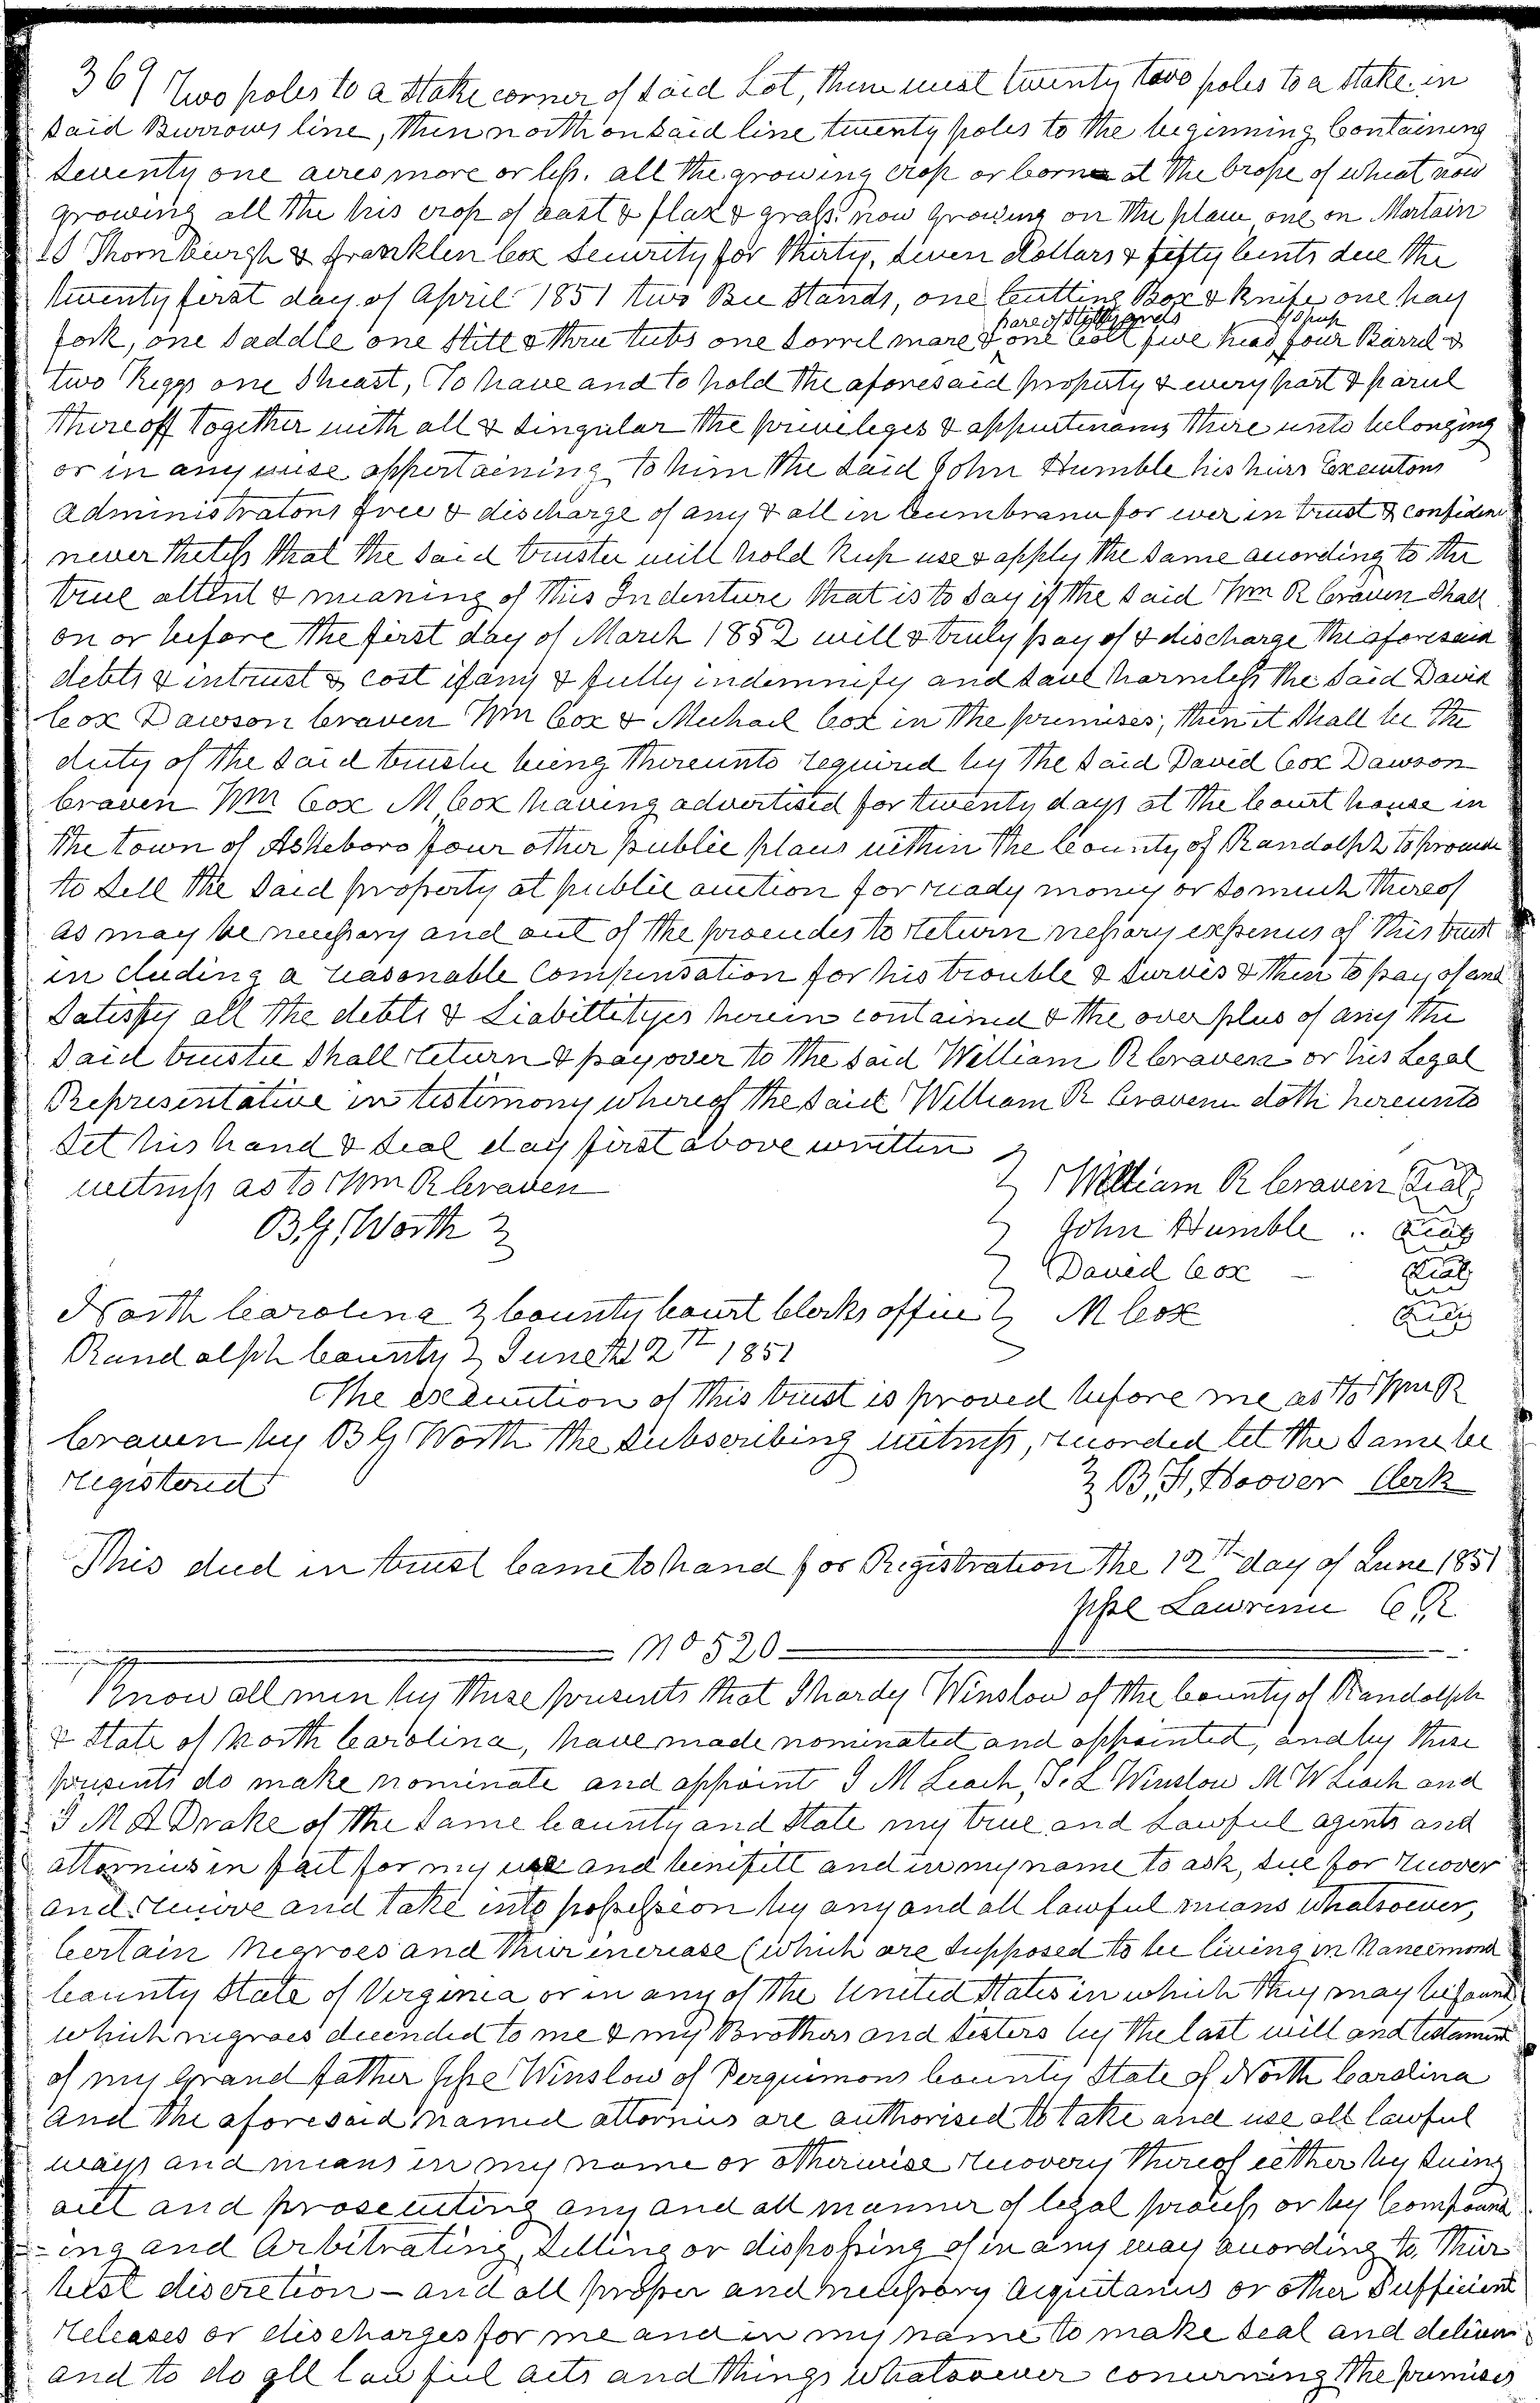 369 Two poles to a Stake corner of said Lot, then west twenty two poles to a stake in
said Burrows line, then north on said line twenty poles to the beginning Containing
Seventy one acres more or less. all the growing crop or corn at the crope of wheat now
growing all the his crop of oast & flax & grass now growing on the place one on Martain
S Thornburgh & franklen Cox Security for thirty, seven dollars & fifty cents due the
twenty ferst day of April 1851 two Bee Stands, one Cutting Box & Knife one hay
pare of Stillyards 40 sheep
fork, one saddle one Still & three tubs one sorrel mare & one colt five head four Barrel &
two Keggs one Sheast, To have and to hold the aforesaid property & every part & parcel
thereoff together with all & singular the priveleges & appurtenances there unto belonging
or in any wise appertaining to him the said John Humble his heirs Executors
administrators free & discharge of any & all in cumbrance for ever in trust & confidenc
never theless that the said trustee will hold keep use & apply the same according to the
true attent & meaning of this Indenture that is to say if the said Wm R Craven Shall
on or before the first day of March 1852 will & truly pay of & discharge the aforesaid
debts & intrust & cost if any & fully indemnify and save harmless the said David
Cox Dawson Craven Wm Cox & Michael Cox in the premises, then it shall be the
duty of the said trustee being thereunto required by the said David Cox Dawson
Craven Wm Cox M Cox having advertised for twenty days at the Court house in
the town of Asheboro four other public places within the County of Randolph to proceede
to sell the said property at public auction for ready money or so much thereof
as may be necessary and out of the proceedes to return nessary expences of this trust
in cluding a reasonable Compensation for his trouble & survis & then to pay of and
Satisfy all the debts & Liabilletyes herein contained & the over plus of any the
said trustee shall return & pay over to the said William R Craven or his Legal
Representative in testimony whereof the said William R Craven doth hereunto
Set his hand & seal day first above written
witness as to Wm R Craven William R Craven Seal
B.G. Worth John Humble .. Seal
David Cox – Seal
North Carolina County Court Clerks office M Cox Seal
Randolph County June 12th 1851
The execution of this trust is proved before me as to Wm R
Craven by B G Worth the Subscribing witness, recorded let the same be
registered B, F, Hoover Clerk
This deed in trust Came to hand for Registration the 12th day of June 1851
Jesse Lawrence C R
No 520
Know all men by these presents that I hardy Winslow of the County of Randolph
& State of North Carolina, have made nominated and appointed, and by these
presents do make nominate and appoint J M Leach, J. L Winslow M W Leach and
J M A Drake of the same County and State my true and Lawful agents and
attornies in fact for my use and benifitt and in my name to ask, sue for recover
and receive and take into possession by any and all lawful means whatsoever,
Certain Negroes and their increase (which are supposed to be living in Nancimond
County State of Virginia or in any of the United States in which they may be found
which negroes decended to me & my Brothers and sisters by the last will and testament
of my Grand father Jesse Winslow of Perquimons County State of North Carolina
and the aforesaid named attornies are authorised to take and use all lawful
ways and means in my name or otherwise recovery thereof either by suing
out and prosecuting any and all manner of legal process or by Compound
-ing and Arbitrating, Selling or disposing of in any way according to, their
best discretion – and all proper and necessary acquitances or other Sufficient
releases or discharges for me and in my name to make seal and deliver
and to do all law ful acts and things whatsoever concerning the premises